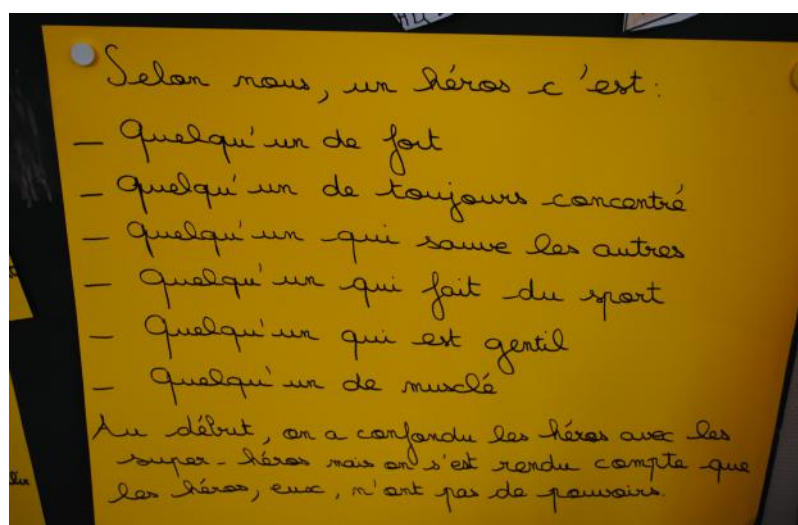 Selon nous, un héros c'est:
— Quelqu'un de fort
— Quelqu'un de toujours concentré
— Quelqu'un qui sauve les autres
— Quelqu'un qui fait du sport
— Quelqu'un qui est gentil
— Quelqu'un de musclé
Au début, on a confondu les héros avec les
super-héros mais on s'est rendu compte que
les héros, eux, n'ont pas de pouvoirs.